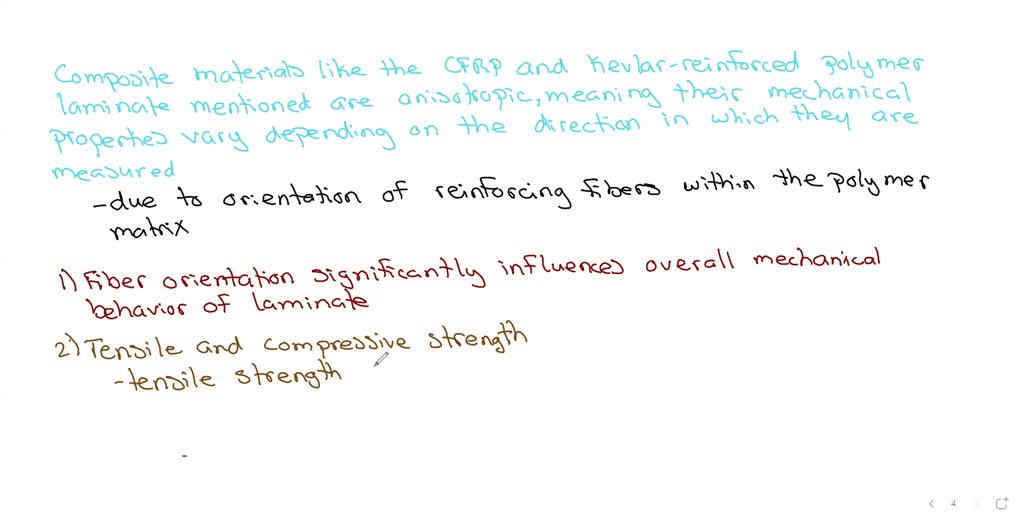 Composite materials like the CFRP and Kevlar-reinforced polymer
laminate mentioned are anisotropic, meaning their mechanical
properties vary depending on the direction in which they are
measured
-due to orientation of reinforcing fibers within the polymer
matrix
1) Fiber orientation significantly influences overall mechanical
behavior of laminate
2) Tensile and compressive strength
-tensile strength
-
< 4